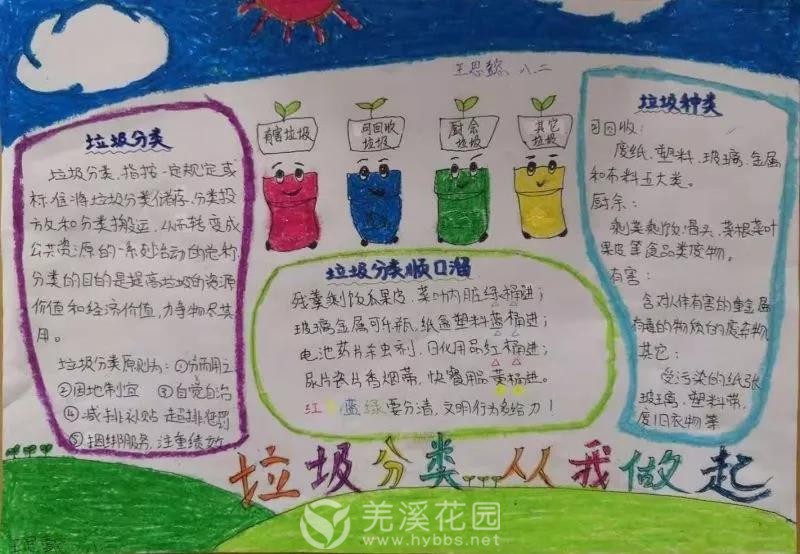 王思懿 八、二
垃圾分类
垃圾分类,指按一定规定或
标准将垃圾分类储存、分类投
放和分类搬运,从而转变成
公共资源的一系列活动的总称
分类的目的是提高垃圾的资源
价值和经济价值,力争物尽其
用。
垃圾分类原则为:①分而用之
②因地制宜 ③自觉自治
④减排补贴 超排惩罚
⑤捆绑服务,注重绩效
有害垃圾
可回收
垃圾
厨余
垃圾
其它
垃圾
垃圾分类顺口溜
残羹剩饭瓜果皮,菜叶内脏绿桶进;
玻璃金属可乐瓶,纸盒塑料蓝桶进;
电池药片杀虫剂,日化用品红桶进;
尿片瓷片香烟蒂,快餐用品黄桶进。
红 蓝绿要分清,文明行为多给力!
垃圾种类
可回收:
废纸、塑料、玻璃、金属
和布料五大类。
厨余:
剩菜剩饭、骨头、菜根菜叶
果皮等食品类废物。
有害:
含对人体有害的重金属
有毒的物质的废弃物
其它:
受污染的纸张
玻璃、塑料带、
废旧衣物等
垃圾分类…从我做起
羌溪花园
www.hybbs.net